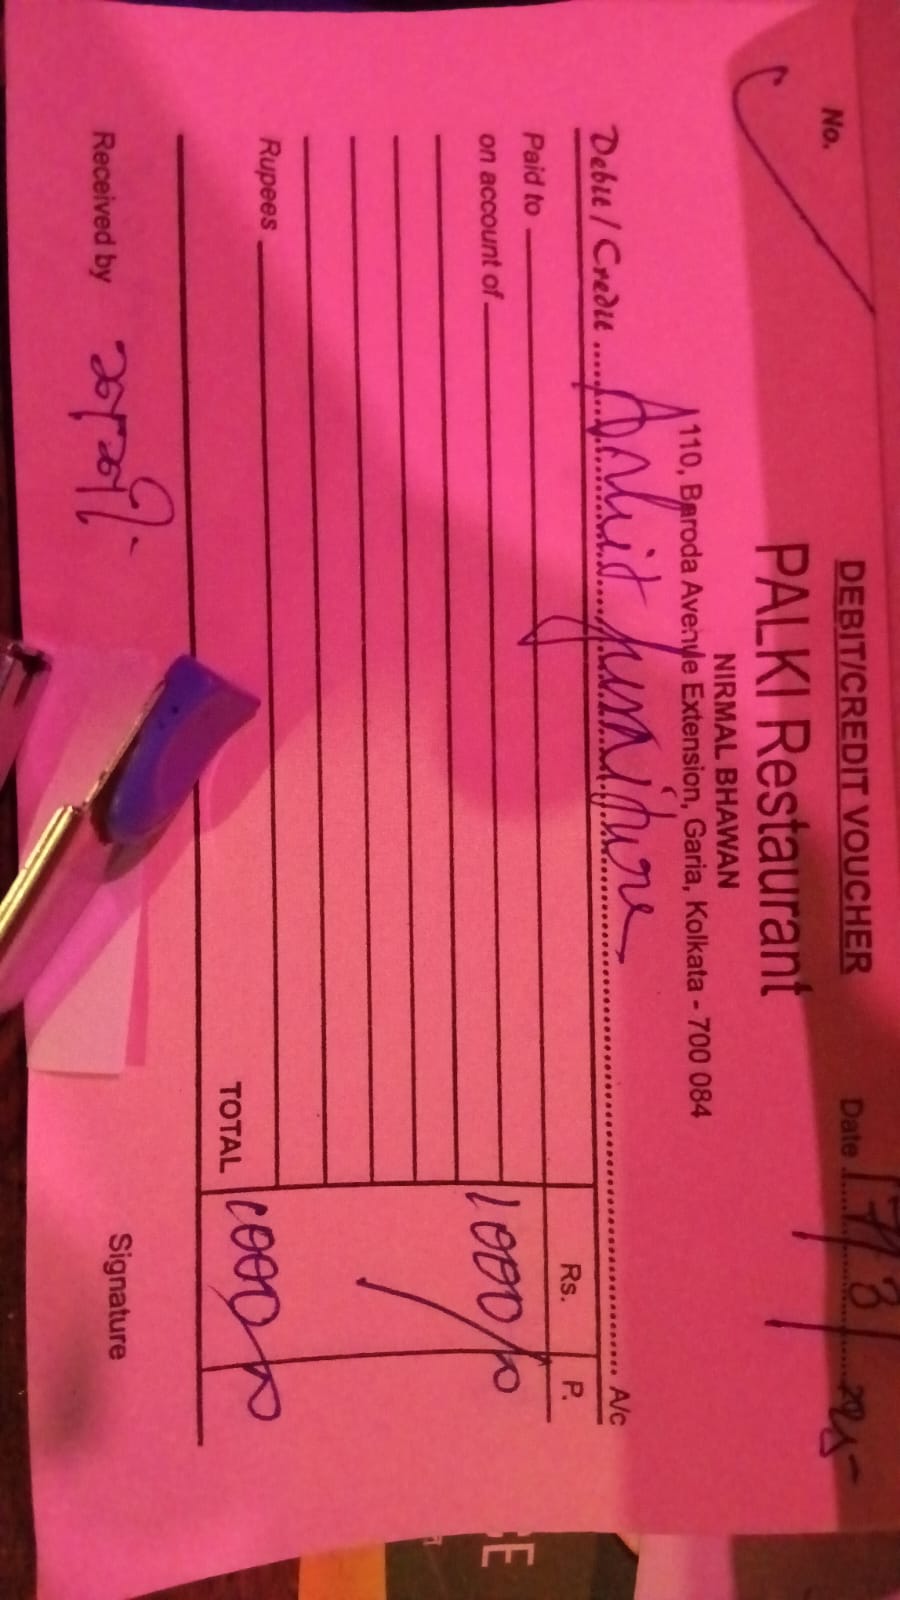 DEBIT/CREDIT VOUCHER
No.
Date 17/3/2025
PALKI Restaurant
NIRMAL BHAWAN
110, Baroda Avenue Extension, Garia, Kolkata - 700 084
Debit / Credit ..... A/c
Rs. P.
Paid to
on account of 1000/0
Rupees
TOTAL 1000/0
Received by
Signature